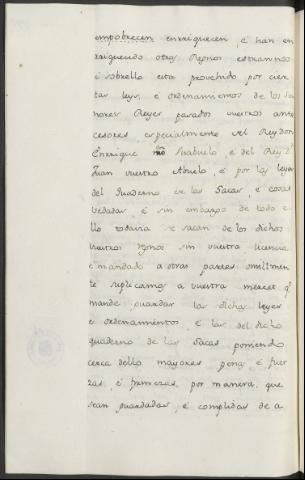 empobrecen enrriquecen, é han en
rriquecido otros Regnos estrannos
é sobrello está provehido por cier
tas leyes é ordenamientos de los Se
nores Reyes pasados vuestros ante
cesores especialmente del Rey Don
Enrrique visabuelo, é del Rey Dn
Juan vuestro Abuelo, é por las leyes
del quaderno de las Sacas, é cosas
vedadas, é sin embargo de todo e
llo todavia se sacan de los dichos
vuestros regnos sin vuestra licencia
é mandado a otras partes omilmen
te suplicamos a vuestra merced q
mande guardar las dichas leyes
e ordenamientos, é las del dicho
quaderno de las Sacas poniendo
cerca dello mayores penas é fuer
zas, é firmezas, por manera, que
sean guardadas, é complidas de a